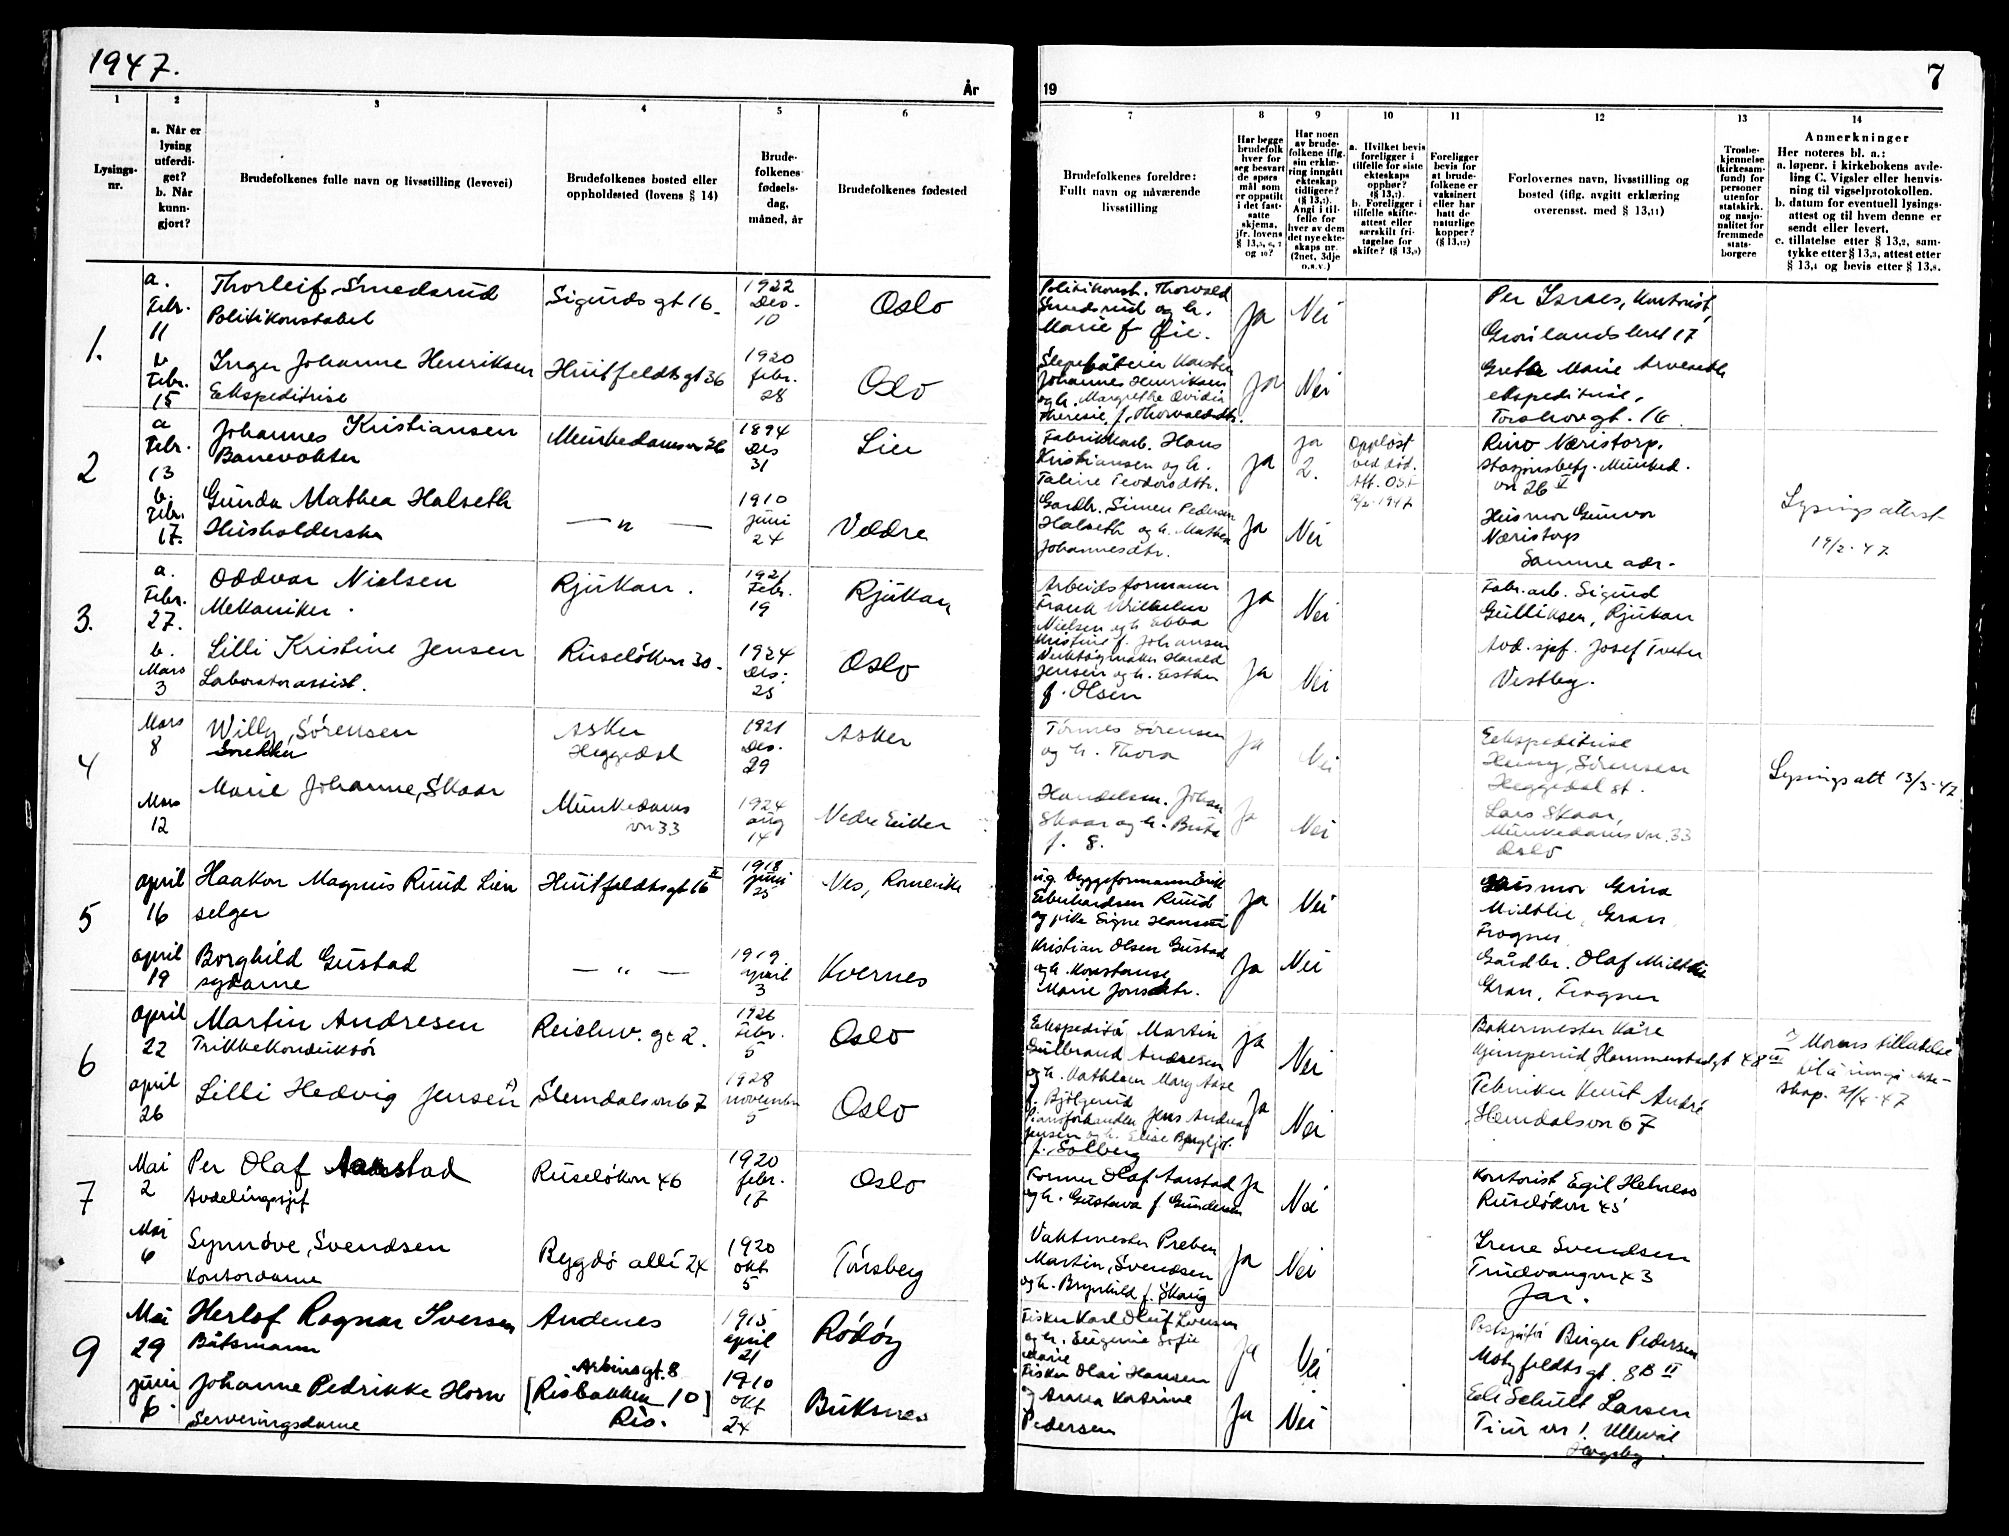 1947.
År
19
7
1
2
3
4
5
6
7
8
9
10
11
12
13
14
Lysings-
nr.
a. Når er
lysing
utferdi-
get?
b. Når
kunn-
gjort?
Brudefolkenes fulle navn og livsstilling (levevei)
Brudefolkenes bosted eller
oppholdssted (lovens § 14)
Brude-
folkenes
fødsels-
dag,
måned, år
Brudefolkenes fødested
Brudefolkenes foreldre:
Fullt navn og nåværende
livsstilling
Har begge
brudefolk
hver for
seg besvart
de spørs
mål som
er oppstilt
i det fast-
satte
skjema,
jfr. lovens
§ 13,5, 6, 7
og 10?
Har noen
av brude-
folkene iflg.
sin erklæ-
ring inngått
ekteskap
tidligere?
Angi i til-
felle for
hver av dem
det nye ekte-
skaps nr.
(2net, 3dje
o.s.v.)
a. Hvilket bevis
foreligger i
tilfelle for siste
ekteskaps
opphør?
(§ 13,7).
b. Foreligger i
tilfelle skifte-
attest eller
særskilt fri-
tagelse for
skifte? (§ 13,9)
Foreligger
bevis for
at brude-
folkene er
vaksinert
eller har
hatt de
naturlige
kopper?
(§ 13,12)
Forlovernes navn, livsstilling og
bosted (iflg. avgitt erklæring
overensst. med § 13,11)
Trosbe-
kjennelse
(kirkesam-
fund) for
personer
utenfor
statskirk.
og nasjo-
nalitet for
fremmede
stats-
borgere
Anmerkninger
Her noteres bl. a.:
a. løpenr. i kirkebokens avde-
ling C. Vigsler eller henvis-
ning til vigselprotokollen.
b. datum for eventuell lysings-
attest og til hvem denne er
sendt eller levert.
c. tillatelse etter § 13,2, sam-
tykke etter § 13,3, attest etter
§ 13,4 og bevis etter § 13,8.
1.
a.
Febr.
11
Thorleif Smedsrud
Politikonstabel
Sigurds gt 16
1922
Des.
10
Oslo
Politikonst. Thorvald
Smedsrud og h.
Marie f. Øie.
Ja
Nei
Grønlandsleret 17
b
Febr.
15
Inger Johanne Henriksen
Ekspeditrise
Huitfeldtsgt 36
1920
febr.
28
Oslo
Johannes Henriksen
og h. Margrethe Ovidia
Theresie, f. Thorvaldsdtr.
Ja
Nei
Grethe Marie
ekspeditrise,
Torshovgt. 16
2
a
Febr.
13
Johannes Kristiansen
Banevokter
Munkedamsvn 26
1894
Des
31
Lier
Fabrikkarb. Hans
Kristiansen og h.
Taline Teodorsdtr.
Ja
Ja
2.
Oppløst
ved død.
Att. OST
Rino Næristorp.
Stasjonsbetj. Munked.
vn 26 V
b.
Febr.
17.
Gunda Mathea Halseth
Husholderske
— " —
1910
juni
24
Veldre
Gardbr. Simen Pedersen
Halseth og h. Mathea
Johannesdtr.
Ja
Nei
Husmor Gunvor
Næristorp
Samme adr.
Lysingsattest
19/2-47
3.
a.
Febr.
27.
Oddvar Nielsen
Mekaniker.
Rjukan.
1921
Febr.
19
Rjukan
Arbeidsformann
Frank Wilhelm
Nielsen og h. Ebba
Kristine f. Johansen
Ja
Nei
Fabr.arb. Sigurd
Gulliksen, Rjukan
b.
Mars
3
Lilli Kristine Jensen
Laboratorassist.
Ruseløkvn 30.
1924
Des.
25
Oslo
Verktøymaker Harald
Jensen og h. Esther
f. Olsen
Ja
Nei
Avd. sjef. Josef Tveter
Vestby.
4
Mars
8
Willy Sørensen
Snekker
Asker
Heggedal
1921
Des.
29
Asker
Tønnes Sørensen
og h. Thora
Ja
Nei
Ekspeditrise
Henny Sørensen
Heggedal st.
Mars
12
Marie Johanne Skaar
Munkedams
vn 33
1924
aug
14
Nedre Eiker
Handelsm. Johan
Skaar og h. Berta
f. S.
Ja
Nei
Lars Skaar,
Munkedamsvn. 33
Oslo
Lysingsatt 13/3-47
5
april
16
Haakon Magnus Ruud Lien
selger
Huitfeldtsgt 16 II
1918
juni
25
Nes, Romerike
ug. byggeformann Erik
Eberhardsen Ruud
og pike Signe Hansen
Ja
Nei
Husmor Grina
Midtlie, Gran
Frogner
april
19
Borghild Gustad
sydame
— " —
1919
april
3
Kvernes
Kristian Olsen Gustad
og h. Konstanse
Marie Jonsdtr.
Ja
Nei
Gårdbr. Olaf Midtlie
Gran, Frogner
6
april
22
Martin Andresen
Trikkekonduktør
Reichw. gt 2.
1926
Febr.
5
Oslo
Ekspeditør Martin
Gulbrand Andresen
og h. Kathleen Marg Aase
f. Bjølgerud
Ja
Nei
Bakermester Kåre
Kjemperud, Hammerstadgt 48 III
april
26
Lilli Hedvig Jensen ?)
Slemdalsvn 67
1928
november
5
Oslo
Pianoforhandler Jens Andreas
Jensen og h. Elise Bergljot
f. Solberg
Ja
Nei
Tekniker Knut André
Slemdalsvn 67
?) Morens tillatelse
til å inngå ekte-
skap. 21/4-47
7
Mai
2
Per Olaf Aarstad
Avdelingssjef
Ruseløkvn 46
1920
febr.
17
Oslo
Former Olaf Aarstad
og h. Gustava f Gundersen
Ja
Nei
Kontorist Egil Helness
Ruseløkvn 45
Mai
6
Synnøve Svendsen
Kontordame
Bygdø allé 24
1920
okt
5
Tønsberg
Vaktmester Preben
Martin Svendsen
og h. Brynhild f. Skaug
Ja
Nei
Irene Svendsen
Trudvangvn 43
Jar.
9
Mai
29
Herlof Ragnar Iversen
Båtsmann
Andenes
1915
april
21
Rødøy
Fisker Karl Oluf Iversen
og h. Eugenie Sofie
Marie
Ja
Nei
Birger Pedersen
Motzfeldtsgt. 8B II
juni
6
Johanne Pedrikke Horn
Serveringsdame
Arbinsgt. 8
[Risbakken 10]
Ris.
1910
okt
24
Buksnes
Fisker Olai Hansen
og Anna Katrine
Pedersen
Ja
Nei
Schult Larsen
Tiur vn 1. Ullevål
Hageby.